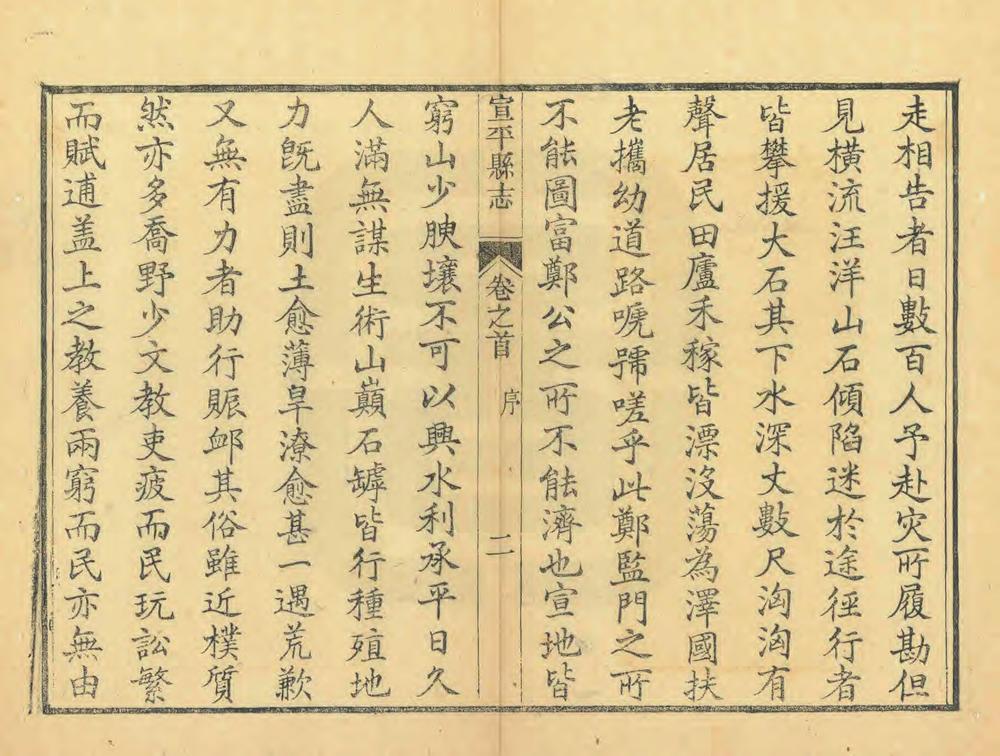 走相告者日數百人予赴灾所履勘但
見橫流汪洋山石傾陷迷於途徑行者
皆攀援大石其下水深丈數尺洶洶有
聲居民田廬禾稼皆漂沒蕩為澤國扶
老攜幼道路唬號嗟乎此鄭監門之所
不能圖富鄭公之所不能濟也宣地皆
宣平縣志
卷之首
序
二
窮山少腴壤不可以興水利承平日久
人滿無謀生術山巔石罅皆行種殖地
力旣盡則土愈薄旱潦愈甚一遇荒歉
又無有力者助行賑卹其俗雖近樸質
然亦多喬野少文教吏疲而民玩訟繁
而賦逋盖上之教養兩窮而民亦無由